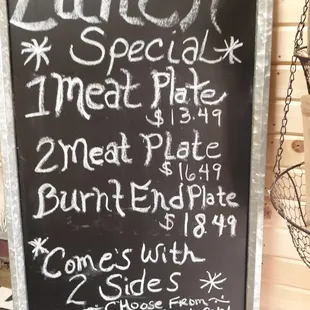 Lunch
* Special *
1 Meat Plate
$ 13.49
2 Meat Plate
$ 16.49
Burnt End Plate
$ 18.49
* Come's with
2 Sides *
~ Choose From ~